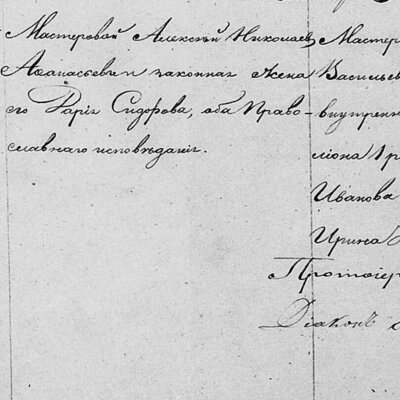 Мастеровой Алексѣй Николаевъ
Аѳанасьевъ и законная жена
его Дарія Сидорова, оба Право-
славнаго исповѣданія.
Мастер
Василье
внутрен
Иванова
Ирина
Протоіер
Діаконъ